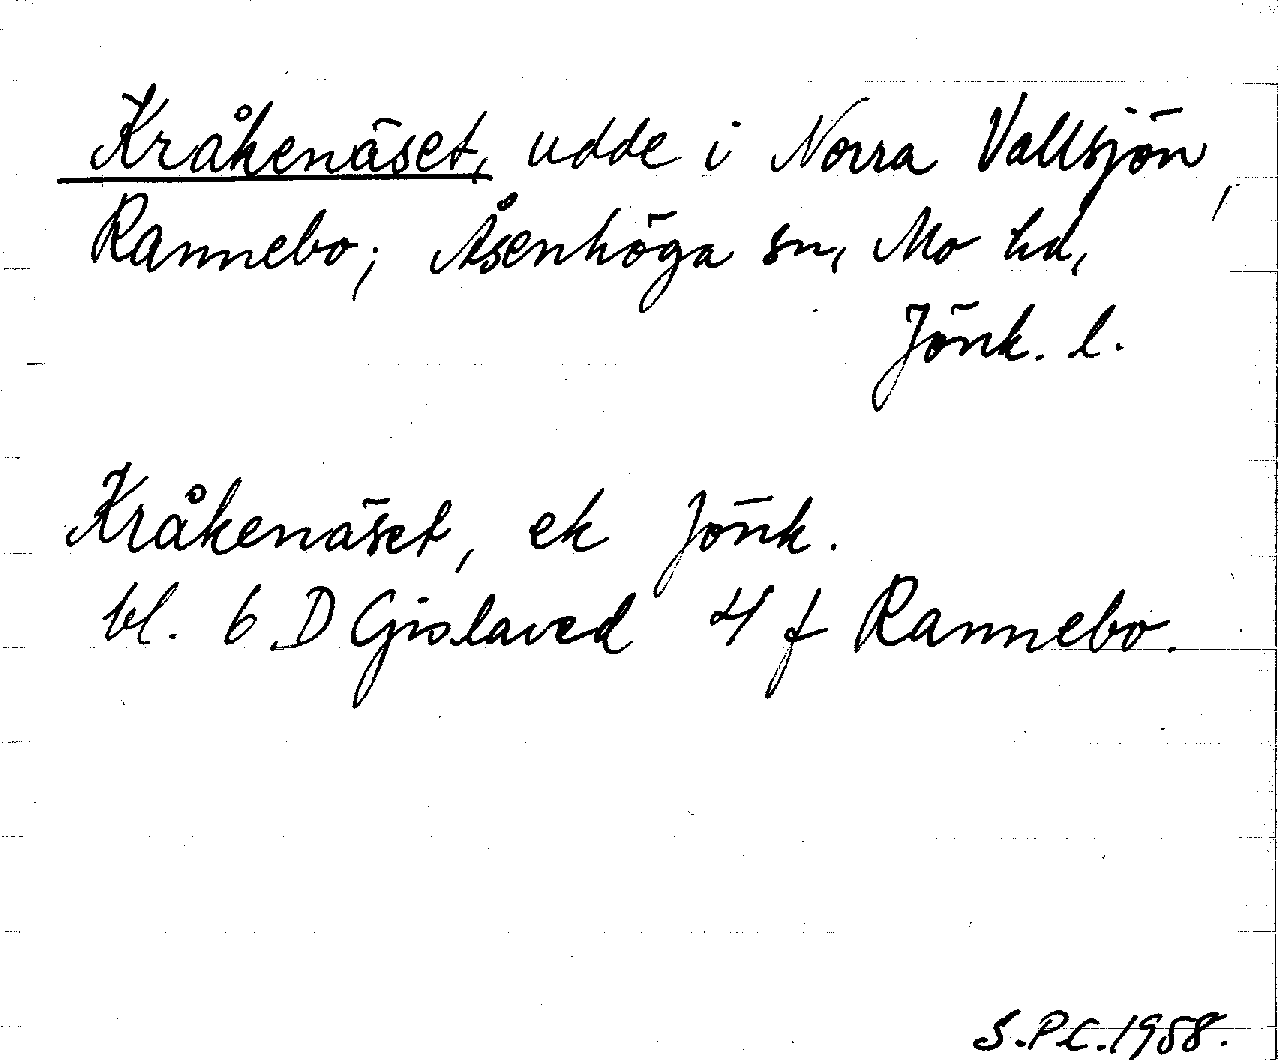 Kråkenäset, udde i Norra Vallsjön,
Rannebo; Åsenhöga sn, Mo hd,
Jönk. l.
Kråkenäset, ek Jönk.
bl. 6 D Gislaved 4 f Rannebo.
S.P.C. 1958.